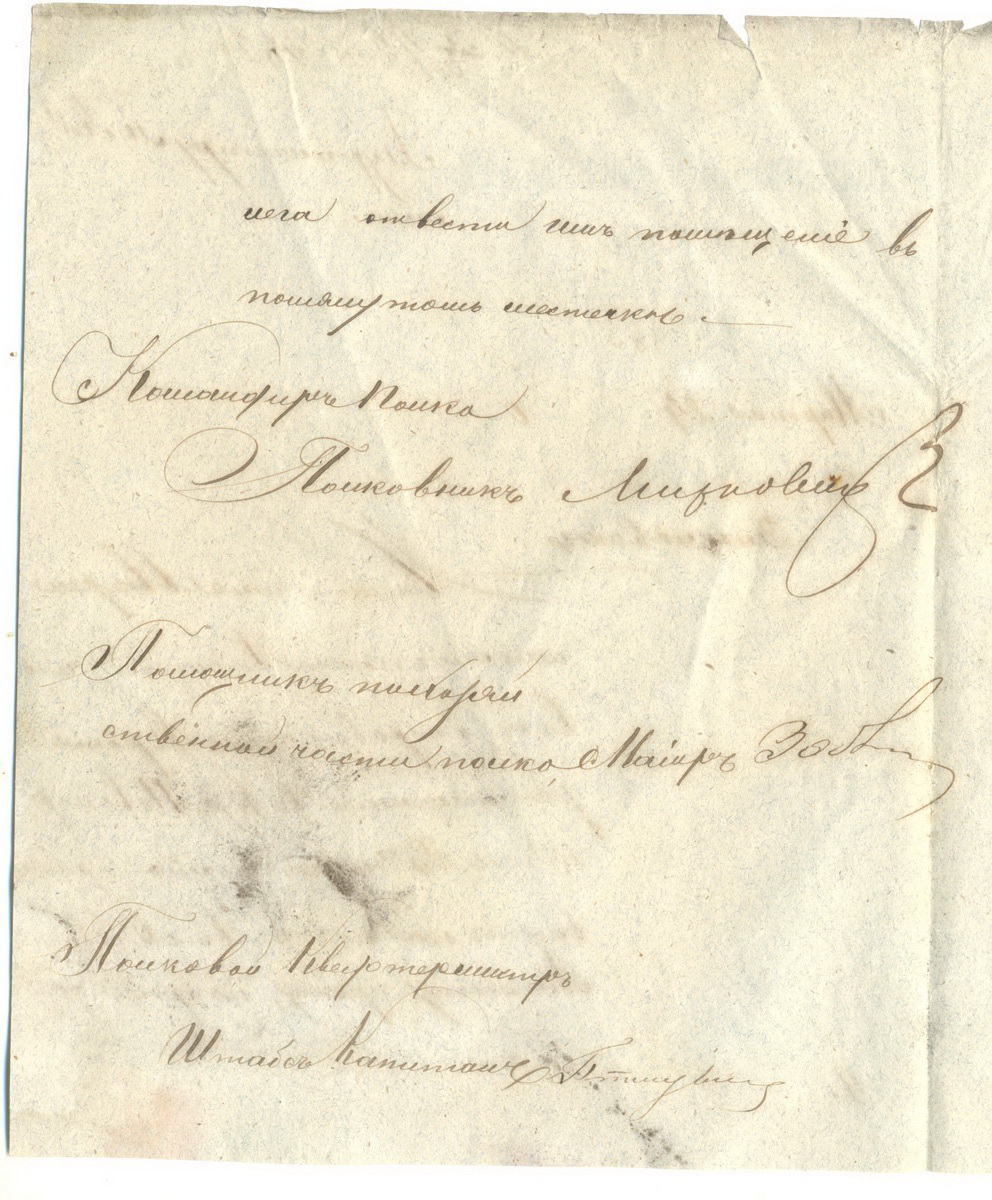 лега отвести имъ помѣщеніе въ
помянутомъ местечкѣ. —
Командиръ полка
Полковникъ Мирковичъ
Помощникъ по хозяй
ственной части полка, Маіоръ
Полковой Квартермистръ
Штабсъ Капитанъ